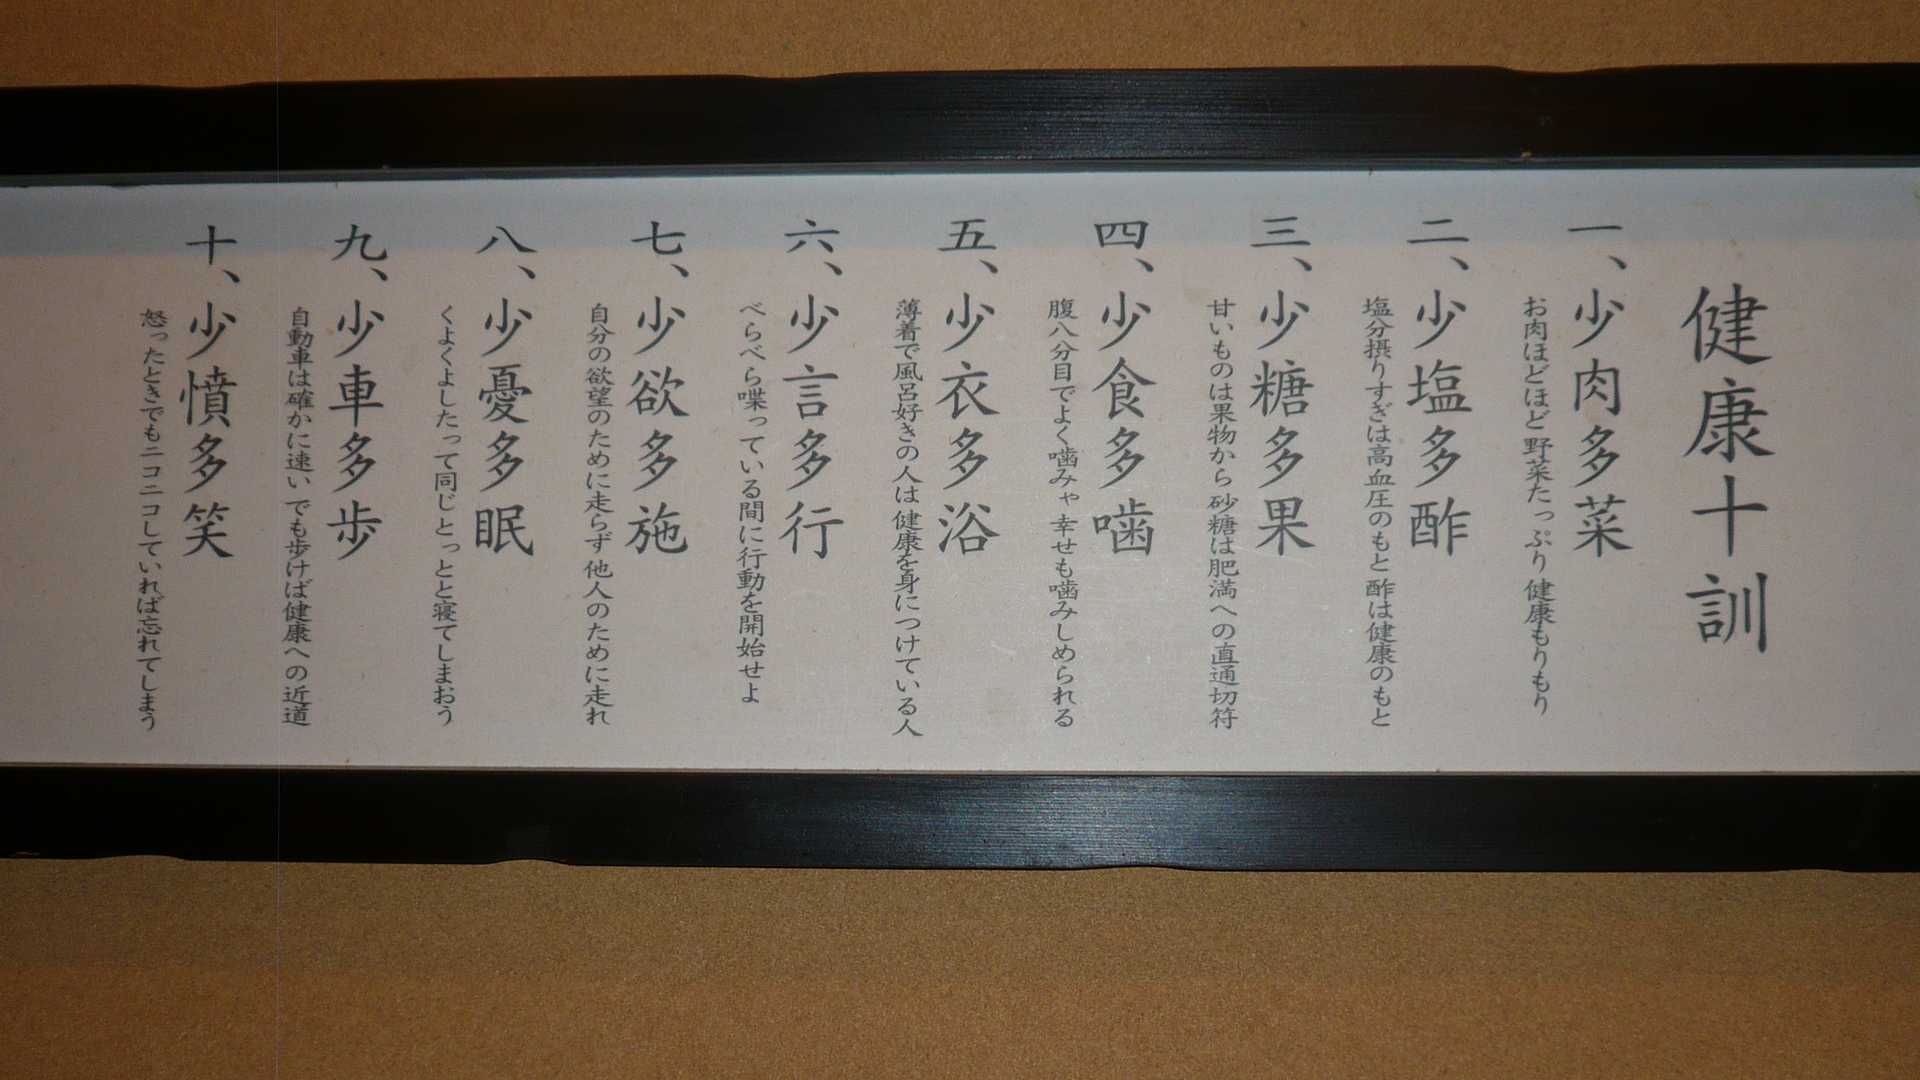 健康十訓
一、少肉多菜
お肉ほどほど 野菜たっぷり 健康もりもり
二、少塩多酢
塩分摂りすぎは高血圧のもと 酢は健康のもと
三、少糖多果
甘いものは果物から 砂糖は肥満への直通切符
四、少食多噛
腹八分目でよく噛みゃ 幸せも噛みしめられる
五、少衣多浴
薄着で風呂好きの人は 健康を身につけている人
六、少言多行
べらべら喋っている間に行動を開始せよ
七、少欲多施
自分の欲望のために走らず 他人のために走れ
八、少憂多眠
くよくよしたって同じ とっとと寝てしまおう
九、少車多歩
自動車は確かに速い でも歩けば健康への近道
十、少憤多笑
怒ったときでもニコニコしていれば忘れてしまう